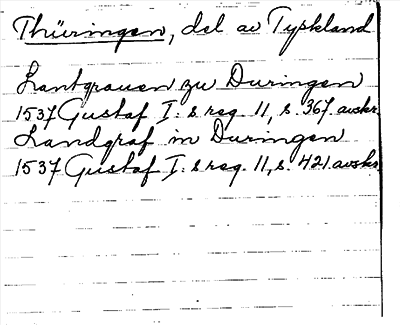 Thüringen, del av Tyskland
Lantgrauen zu Duringen
1537 Gustaf I: s reg. 11, s. 367. avskr.
Landgraf in Duringen
1537 Gustaf I: s reg. 11, s. 421. avskr.